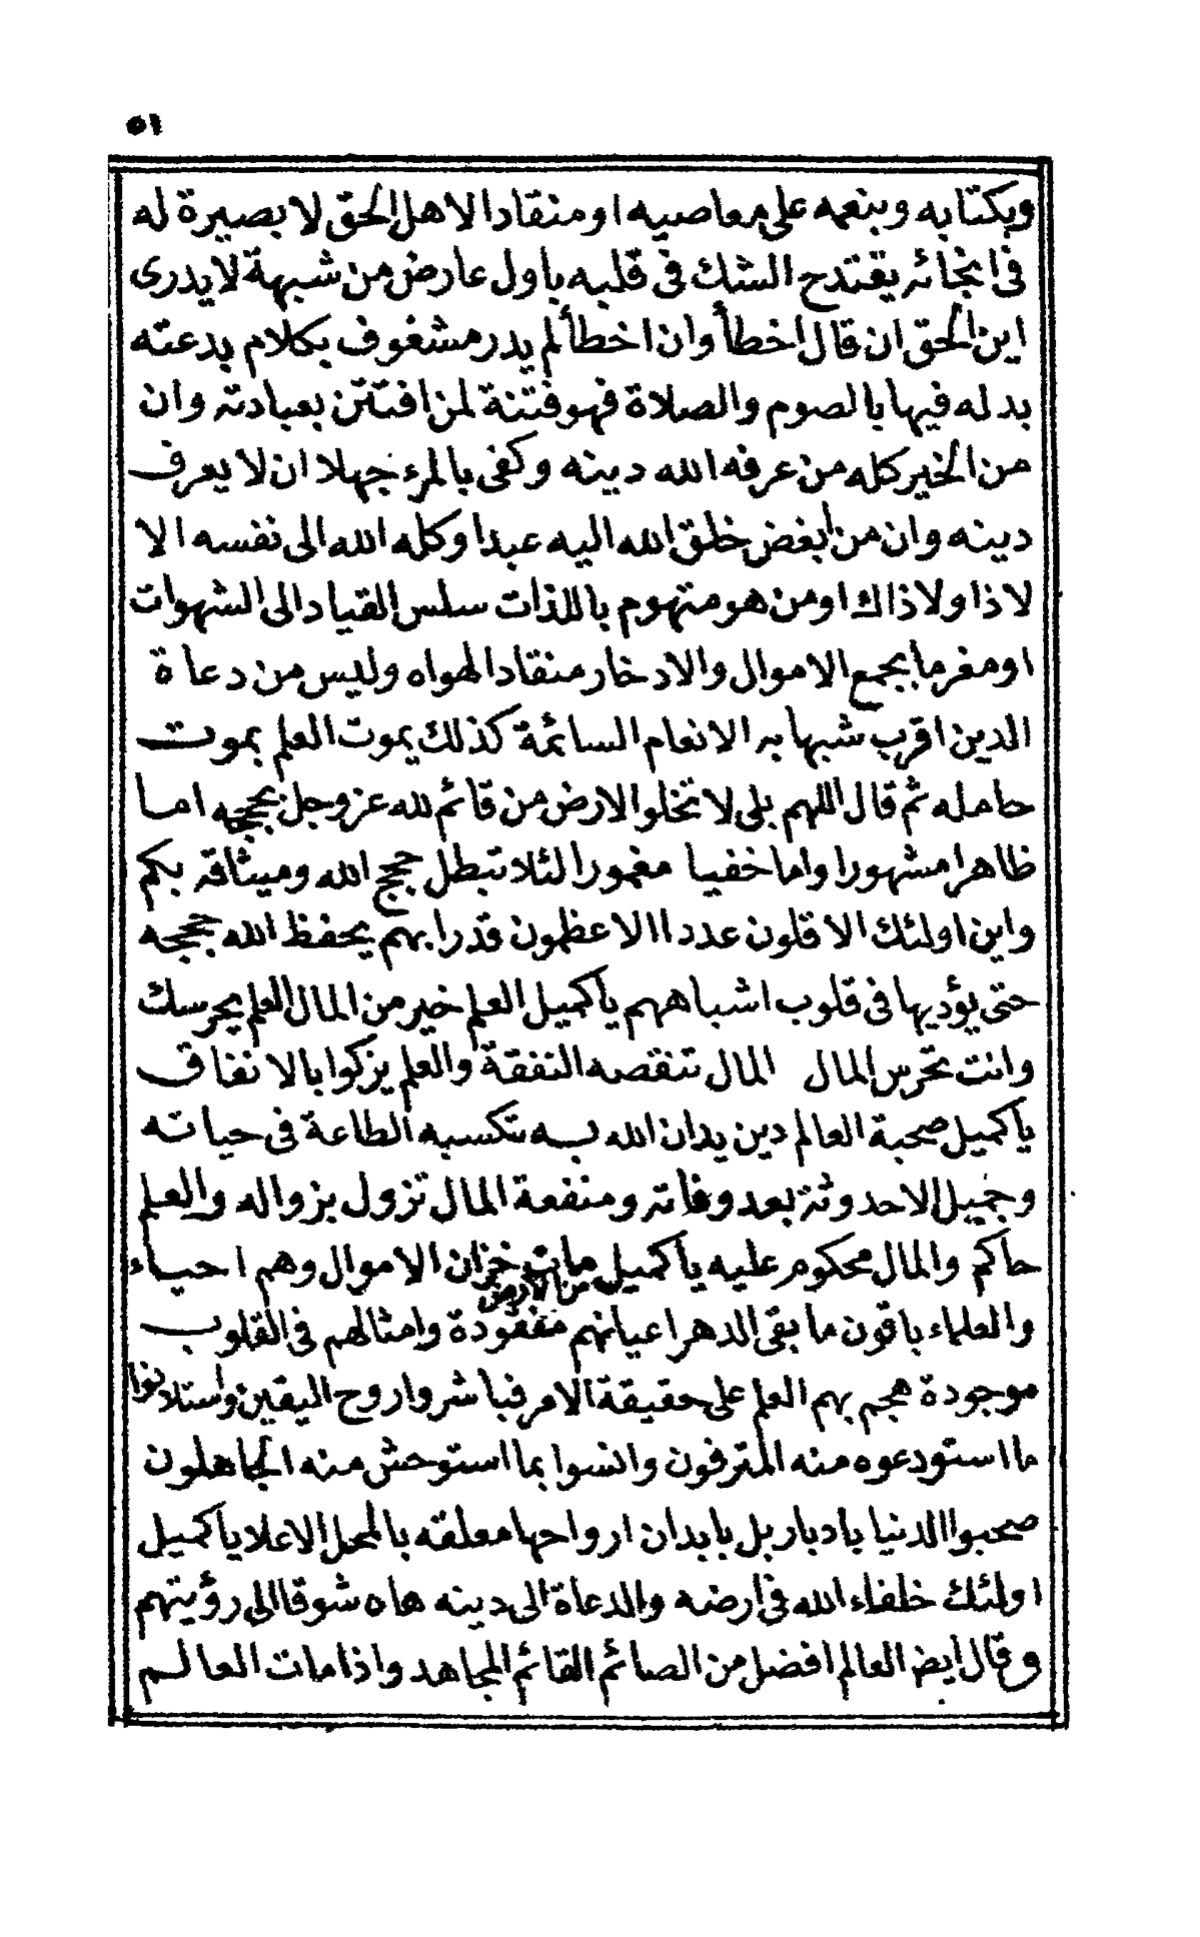 ٥١
وبكتابه وبنعمه على معاصيه او منقادا لاهل الحق لا بصيرة له
فى انحائه يقتدح الشك فى قلبه باول عارض من شبهة لا يدرى
اين الحق ان قال اخطأ وان اخطأ لم يدر مشغوف بكلام بدعته
بد له فيها بالصوم والصلاة فهو فتنة لمن افتتن بعبادته وان
من الخير كله من عرفه الله دينه وكفى بالمرء جهلا ان لا يعرف
دينه وان من ابغض خلق الله اليه عبدا وكله الله الى نفسه الا
لا ذا ولا ذاك او من هو منهوم باللذات سلس القياد الى الشهوات
او مغرما بجمع الاموال والادخار منقادا لهواه وليس من دعاة
الدين اقرب شبها به الانعام السائمة كذلك يموت العلم بموت
حامله ثم قال اللهم بلى لا تخلوا الارض من قائم لله عز وجل بحججه اما
ظاهرا مشهورا واما خفيا مغمورا لئلا تبطل حجج الله وميثاقه بكم
واين اولئك الاقلون عددا الاعظمون قدرا بهم يحفظ الله حججه
حتى يؤديها فى قلوب اشباههم يا كميل العلم خير من المال العلم يحرسك
وانت تحرس المال المال تنقصه النفقة والعلم يزكوا بالانفاق
يا كميل صحبة العالم دين يدان الله به تكسبه الطاعة فى حياته
وجميل الاحدوثة بعد وفاته ومنفعة المال تزول بزواله والعلم
حاكم والمال محكوم عليه يا كميل مات خزان الاموال وهم احياء
والعلماء باقون ما بقى الدهر اعيانهم من الارض مفقودة وامثالهم فى القلوب
موجودة هجم بهم العلم على حقيقة الامر فباشروا روح اليقين واستلانوا
ما استودعوه منه المترفون وانسوا بما استوحش منه الجاهلون
صحبوا الدنيا بادبار بل بابدان ارواحها معلقه بالمحل الاعلا يا كميل
اولئك خلفاء الله فى ارضه والدعاة الى دينه هاه شوقا الى رؤيتهم
وقال ايض العالم افضل من الصائم القائم المجاهد واذا مات العالم